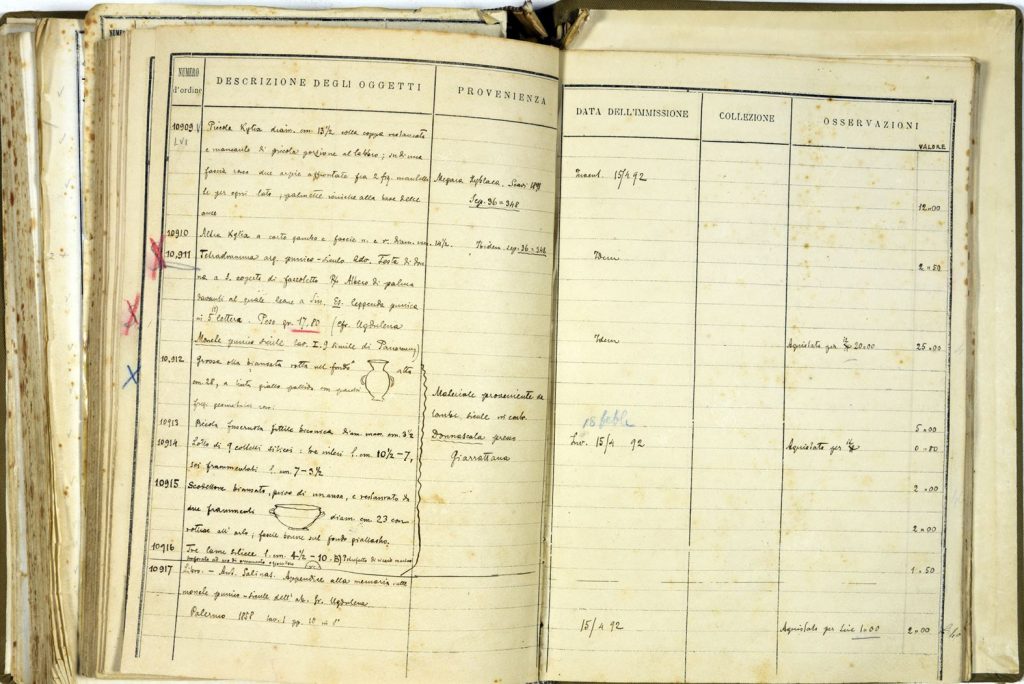 NUMERO d'ordine
DESCRIZIONE DEGLI OGGETTI
PROVENIENZA
DATA DELL'IMMISSIONE
COLLEZIONE
OSSERVAZIONI
VALORE
10909
LVI
Piccola Kylia diam. cm 13½ colla coppa restaurata
e mancante di piccola porzione al labbro; su di una
fascia rossa due arpie affrontate fra 2 fig. mantellate
per ogni lato; palmette ioniche alla base delle
anse
Megara Hyblaea. Scavi 1891
Sep. 36 = 348
Invent. 15/4 92
12.00
10910
Altra Kylia a corto gambo e fascie n. e r. diam. cm.
Ibidem sep. 36 = 348
Idem
2.50
10.911
Tetradramma arg. punico-siculo. Testa di don
na a S. coperta di faccoletto Rv Albero di palma
davanti al quale leone a Sin. Es. leggenda punica
di 5 lettere. Peso gr. 17,80 (cfr. Ugdulena
Monete punico sicule tav. I. 9 simile di Panormus)
Idem
Aquistato per 20.00
25.00
10.912
Grossa olla biansata rotta nel fondo alta
cm. 28, a tinta giallo pallida con
fregi geometrici rossi:
Materiale proveniente da
tombe sicule in contr.
Donnascala presso
Giarratana
5.00
10913
Piccola fuseruola fittile biconica diam. mass. cm. 3½
10914
Lotto di 9 coltelli silicei: tre interi l. cm. 10½-7,
sei frammentati l. cm 7-3½
Inv. 15/4 92
Aquistato per
0.80
2.00
10915
Scodellone biansato, privo di un'ansa, e restaurato da
due frammenti diam. cm. 23 con
rotture all'orlo; fascie brune sul fondo giallastro.
2.00
10916
Tre lame silicee l. cm. 4½-10.
1.50
10917
Libro. - Ant. Salinas. Appendice alla memoria sulle
monete punico-sicule dell'ab. Gr. Ugdulena
Palermo 1858
15/4 92
Aquistato per Lire 1.00
2.00